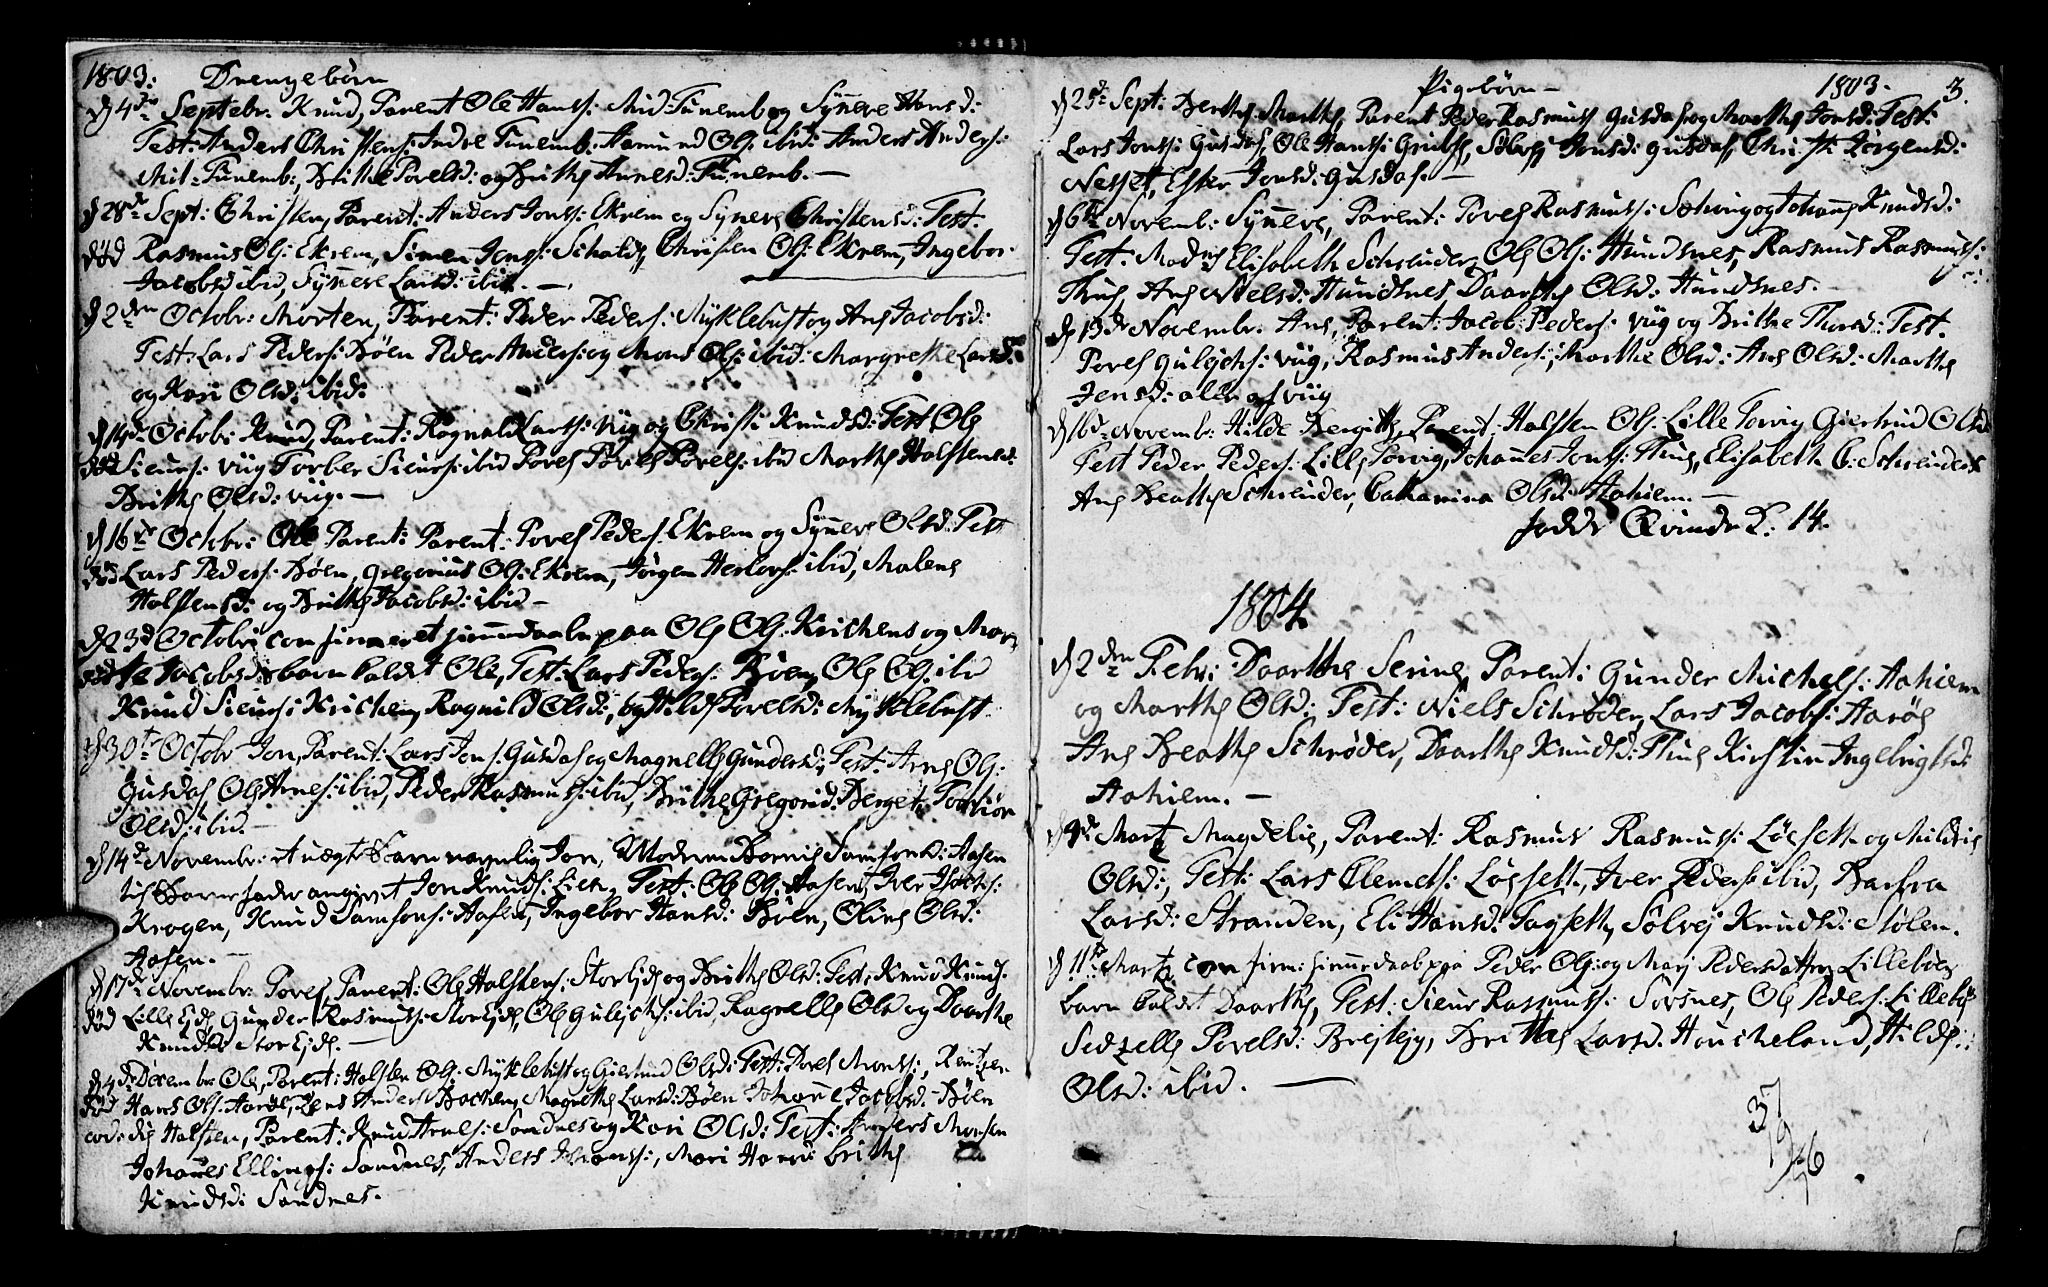 1803. Drengebörn
d 4de Septebr. Knud, Parent Ole Hans: Mid-Tunemb og Synneve Hansd:
Test: Anders Christens: Indre Tunemb: Aamund Ols: ibid: Anders Anders:
Mit-Tunemb:, Britthe Povelsd: og Brithe Annesd: Tunemb. —
d 28de Sept: Christen, Parent: Anders Jons: Ekrem og Synneve Christensd: Test.
død Rasmus Ols: Ekrem, Simen Jens: Christen Ols: Ekrem, Ingebor
Jacobsd ibid, Synneve Larsd: ibid. —
d 2den Octobr: Morten, Parent: Peder Peders: Mÿklebust og Ane Jacobsd:
Test: Lars Peders: Böen Peder Anders: og Mons Ols: ibid: Margrethe Larsd:
og Kari Olsd: ibid:
d 14de Octob: Knud, Parent: Rognald Lars: Viig og Christi Knudsd: Test Ole
død Sieurs: Viig Torber Sieurs: ibid Povel Povels: ibid Marthe Halstensd:
Brithe Olsd: Viig. —
d 16de Octobr: Ole Parent: Parent: Povel Peders: Ekrem og Synneve Olsd: Test
død Lars Peders: Böen, Gregorius Ols: Ekrem, Jörgen Herlovs: ibid, Malene
Halstensd: og Brithe Jacobsd: ibid —
d 23d Octobr: confirmeret hiemmedaaben paa Ole Ols: Krichens og Mar-
død te Jacobsd: barn kaldet Ole, Test: Lars Peders: Böen, Ole Ols: ibid
Knud Sieurs: Krichen, Ragnild Olsd:, og Hilde Povelsd: Mÿklebust
d 30te Octobr Jon, Parent: Lars Jons: Gusdal og Magnelle Gundersd:, Test: Arne Ols:
Gusdal, Ole Arnes: ibid, Peder Rasmus: ibid, Brithe Gregorid: Berget: Torbiör
Olsd: ibid. —
d 14de Novembr: et uægte Barn navnlig Jon, Moderen Samsonsd: Aasen
til Barnefader angivet Jon Knuds: Lien, Test: Ole Ols: Aasen, Iver
Krogen, Knud Samsons: Aasen, Ingebor Hansd: Böen, Oline Olsd:
Aasen. —
d 17de Novembr: Povel, Parent: Ole Halstens: StorEjde og Brithe Olsd: Test: Knud Knuds:
død Lille Ejde Gunder Rasmus: StorEjde, Ole Gulichs: ibid, Ragnelle Olsd og Daarthe
Knudsd StorEjde. —
d 4de Decembr Ole, Parent: Halsten Ols: Mÿklebust og Giertrud Olsd: Test: Povel Mons:,
død Hans Ols: Aaröe, Anders Bachen, Magrethe Larsd: Böen Johanne Jacobsd: Böen
eod: die Halsten, Parent: Knud Arnes: Sandnes og Kari Olsd: Test: Anders Monsen
Johannes Ellings: Sandnes, Anders Johans:, Mari Hansd: brithe
Knudsd: Sandnes. —
Pigebörn — 1803. 3.
d 25de Sept: Berthe Marthe, Parent Peder Rasmus Gusdal og Marthe Jonsd: Test:
Lars Jons: Gusdal, Ole Hans: Sölvej Jonsd: Gusdal, Jörgensd:
Nesset, Ester Jonsd: Gusdal. —
d 6te Novemb: Synneve, Parent: Povel Rasmus: og Johanne Knudsd:
Test. Madme Elisabeth Schreuder, Ole Ols: Hundsnes, Rasmus Rasmus:
Thue, Ane Nielsd: Hundsnes, Daarthe Olsd: Hundsnes. —
d 13de Novembr. Ane, Parent: Jacob Peders: Viig og Brithe Thorsd: Test.
Povel Gulichs: Viig, Rasmus Anders:, Marthe Olsd: Ane Olsd: Marthe
Jensd: alle af Viig
d 16de Novembr: Hilde Bergitte, Parent: Halsten Ols: Lille Torvig Giertrud Olsd
Test Peder Peders: Lille Torvig, Johannes Jons: Thue, Elisabeth C: Schreuder
Ane Beathe Schreuder, Catharina Olsd: Hahiem. —
födde Qvinde K. 14.
1804
d 2den Feb: Daarthe Serine, Parent: Gunder Michels: Hahiem
og Marthe Olsd: Test: Niels Schröder, Lars Jacobs: Aaröe
Ane Beathe Schröder, Daarthe Knudsd: Thue Kirstin Ingebrigtsd:
Hahiem. —
d 4de Martz Magdelie, Parent: Rasmus Rasmus: Löfsett og Mildrie
Olsd:, Test: Lars Clemets: Löfsett, Iver Peders: ibid, Barbra
Larsd: Stranden, Eli Hansd: Fagsett, Sölvej Knudsd: Stölen.
d 11te Martz Confirm: hiemmedaab paa Peder Ols: og Marj Pedersdatter Lilleböe
barn kaldet Daarthe, Test: Sieur Rasmus: Sorsnes, Ole Peders: Lilleböe
Sedzelle Povelsd: Brejteig, Brithe Larsd: Houcheland, Hilde:
Olsd: ibid. —
37
9
46